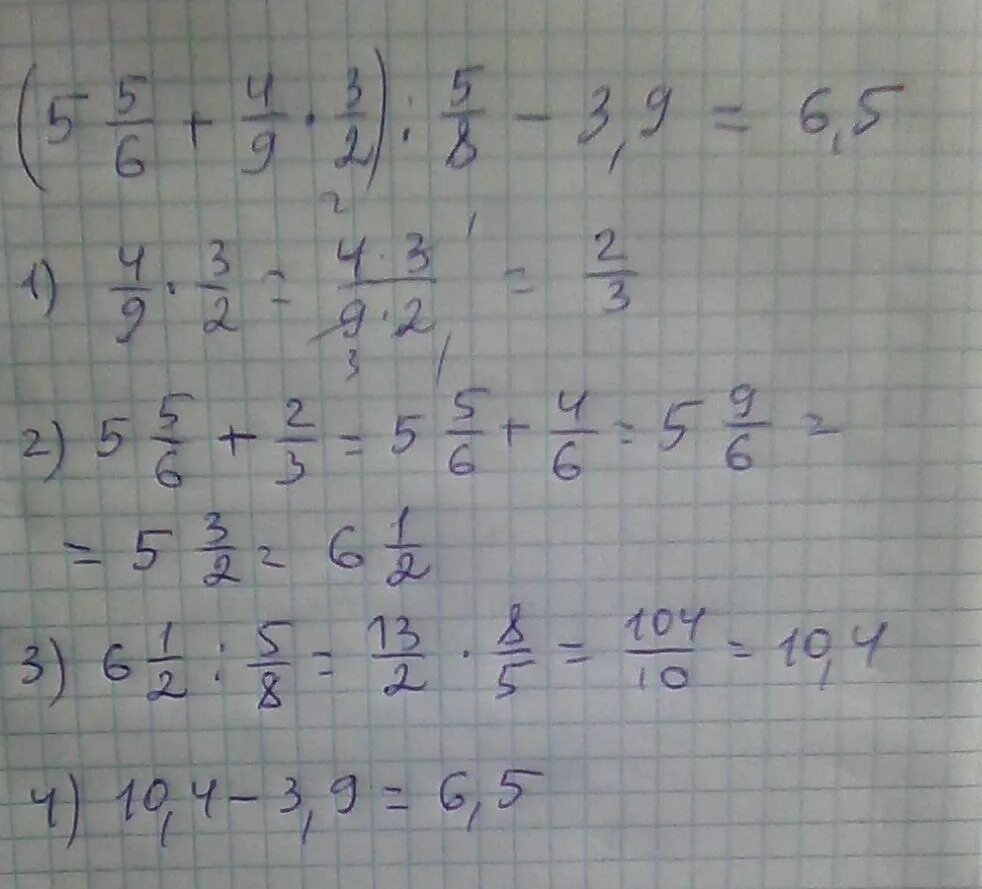 (5 5/6 + 4/9 · 3/2) : 5/8 - 3,9 = 6,5
1) 4/9 · 3/2 = 4 · 3 / 9 · 2 = 2/3
2) 5 5/6 + 2/3 = 5 5/6 + 4/6 = 5 9/6 =
= 5 3/2 = 6 1/2
3) 6 1/2 : 5/8 = 13/2 · 8/5 = 104/10 = 10,4
4) 10,4 - 3,9 = 6,5